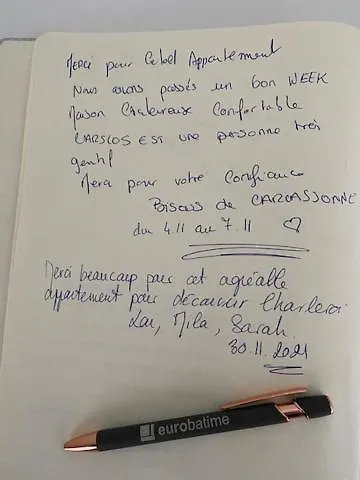 Merci pour Cebel Appartement
Nous avons passés un bon WEEK
Maison Chaleureuse Confortable
CARSLOS EST une personne très
gentil
Merci pour votre Confiance
Bisous de CARCASSONNE
du 4.11 au 7.11 ♡
Merci beaucoup pour cet agréable
appartement pour découvrir Charleroi
Lou, Mila, Sarah.
30.11.2021
eurobatime